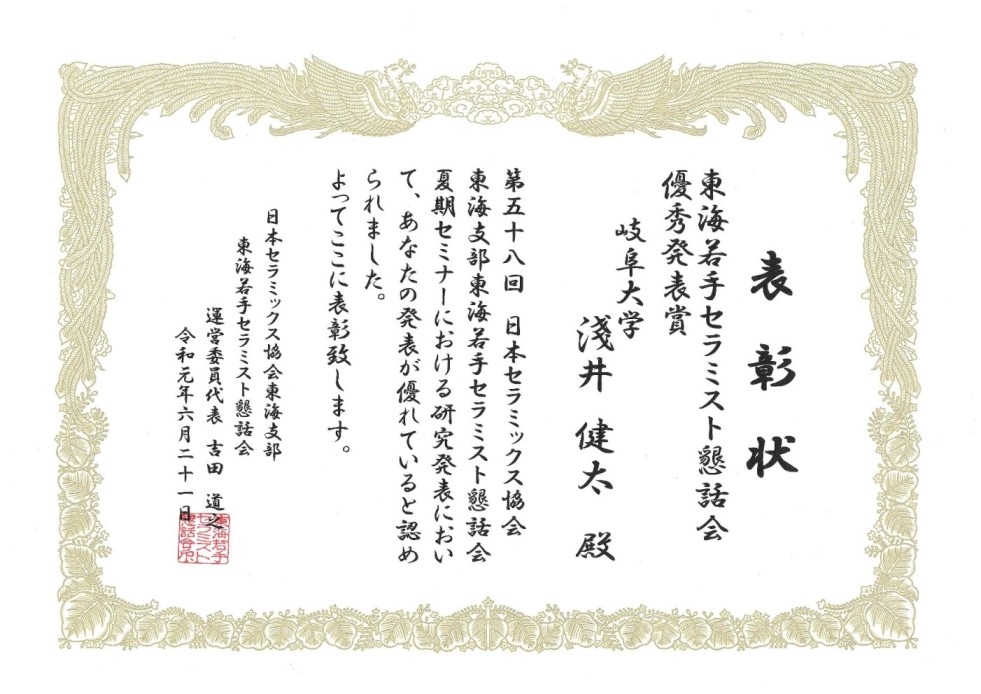 表彰状
東海若手セラミスト懇話会
優秀発表賞
岐阜大学
淺井 健太 殿
第五十八回 日本セラミックス協会
東海支部東海若手セラミスト懇話会
夏期セミナーにおける研究発表におい
て、あなたの発表が優れていると認め
られました。
よってここに表彰致します。
日本セラミックス協会東海支部
東海若手セラミスト懇話会
運営委員代表 吉田 道之
令和元年六月二十一日
東海若手
セラミスト
懇話会印